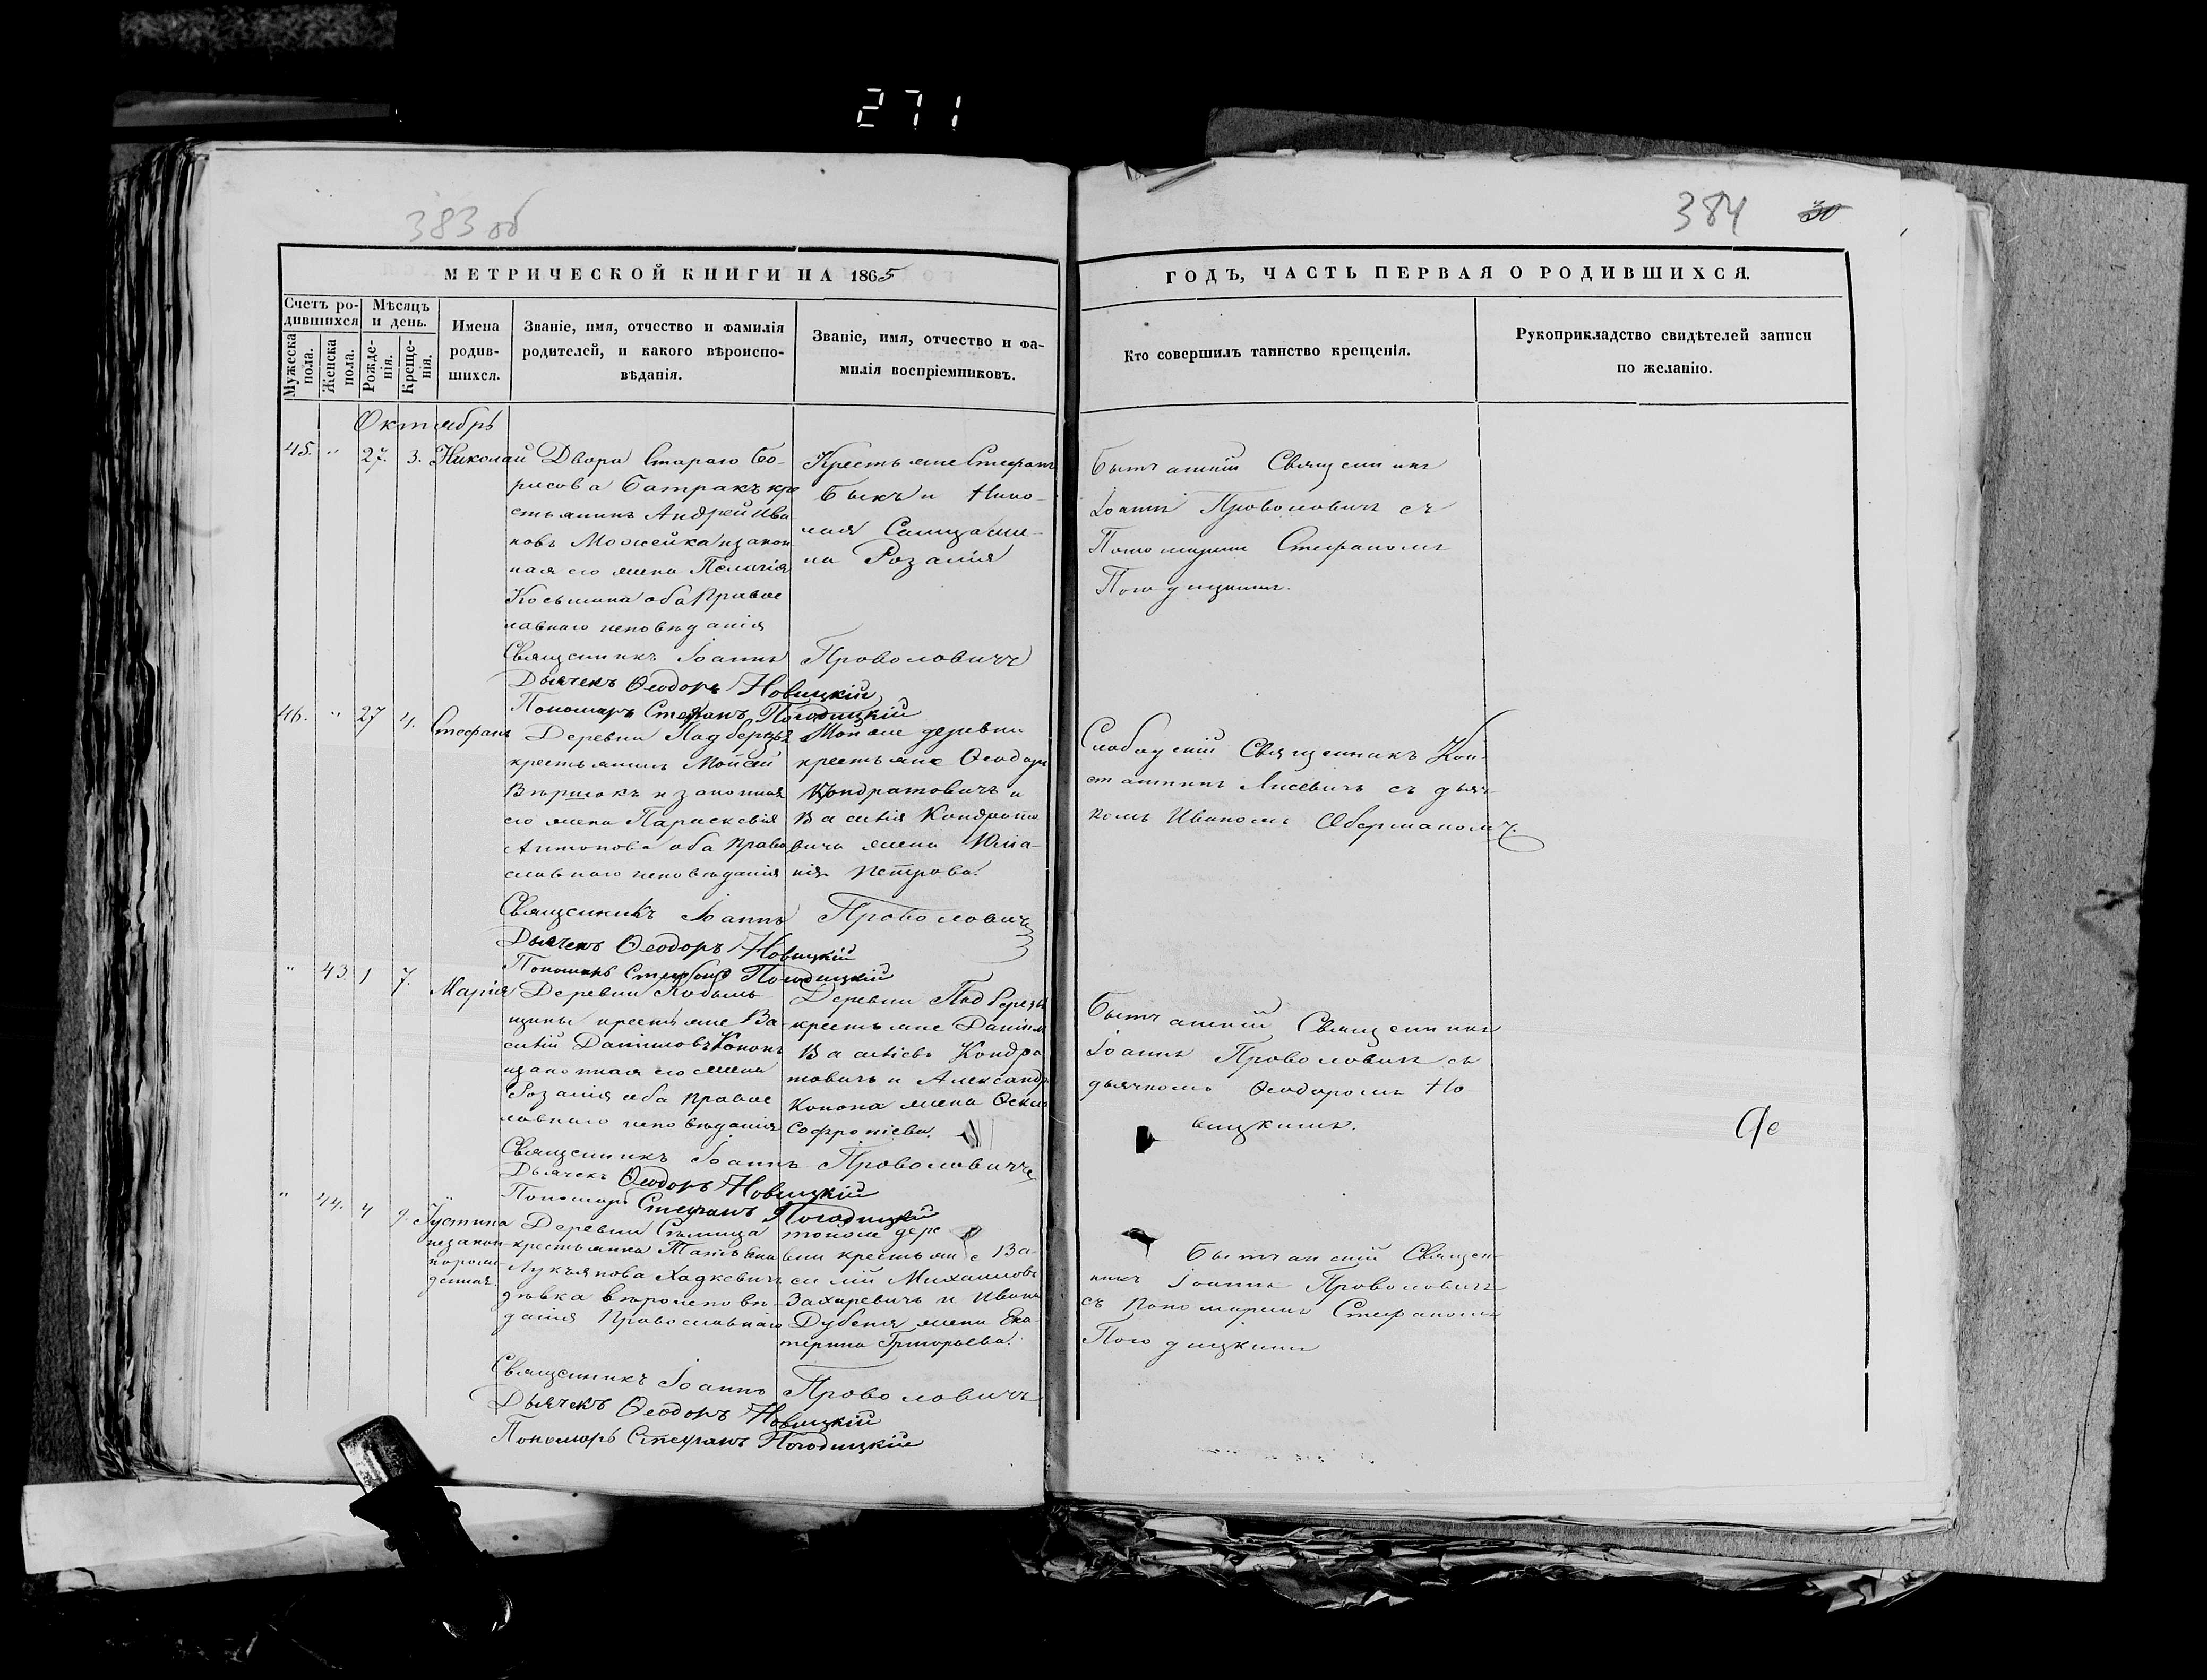 271
383 об
384 30
МЕТРИЧЕСКОЙ КНИГИ НА 1865
ГОДЪ, ЧАСТЬ ПЕРВАЯ О РОДИВШИХСЯ.
Счетъ ро-
дившихся
Мужеска пола.
Женска пола.
Мѣсяцъ и день.
Рожде-
нія.
Креще-
нія.
Имена
родив-
шихся.
Званіе, имя, отчество и фамилія
родителей, и какого вѣроиспо-
вѣданія.
Званіе, имя, отчество и фа-
милія воспріемниковъ.
Кто совершилъ таинство крещенія.
Рукоприкладство свидѣтелей записи
по желанію.
Октябрь
45. " 27. 3. Николай
Двора Стараго Бо-
рисова Батракъ кре
стьянинъ Андрей Ива
новъ Можейка и закон
ная его жена Пелагія
Косьмина оба Правос
лавнаго исповѣданія
Крестьяне Стефанъ
Быкъ и
Розалія
Бытчанскій Священникъ
Іоаннъ Проволовичъ съ
Пономаремъ Стефаномъ
Погодицкимъ.
Священникъ Іоаннъ Проволовичъ
Дьячекъ Ѳеодоръ Новицкій
Пономарь Стефанъ Погодицкій
46. " 27 4. Стефанъ
Деревни Подберезья
крестьянинъ Мойсей
Вѣршокъ и законная
его жена Параскевія
Антонова оба Право
славнаго исповѣданія
Той же деревни
крестьяне Ѳеодоръ
Кондратовичъ и
Василія Кондрато
вича жена Юліа-
нія Петрова.
Слободскій Священникъ Кон-
стантинъ Лисевичъ съ дьяч-
комъ Иваномъ Оберманомъ.
Священникъ Іоаннъ Проволовичъ
Дьячекъ Ѳеодоръ Новицкій
Пономарь Стефанъ Погодицкій
" 43 1 7. Марія
Деревни Кобыль
щины крестьяне Ва-
силій Даниловъ Кононъ
и законная его жена
Розалія оба Правос
лавнаго исповѣданія
Деревни Подберезья
крестьяне Даніилъ
Василіевъ Кондра
товичъ и Александра
Конона жена Ѳекла
Софроніева.
Бытчанскій Священникъ
Іоаннъ Проволовичъ съ
дьячкомъ Ѳеодоромъ Но
вицкимъ.
Священникъ Іоаннъ Проволовичъ
Дьячекъ Ѳеодоръ Новицкій
Пономарь Стефанъ Погодицкій
" 44. 4 9. Іустина
незакон-
норож-
денная.
Деревни
крестьянка Татьяна
Лукьянова Хадкевичъ
дѣвка вѣроисповѣ-
данія Православнаго
тойже дере
вни крестьяне Ва-
силій Михаиловъ
Захаревичъ и Ивана
Дубеня жена Ека-
терина Григорьева.
Бытчанскій Священ-
никъ Іоаннъ Проволовичъ
съ Пономаремъ Стефаномъ
Погодицкимъ
Священникъ Іоаннъ Проволовичъ
Дьячекъ Ѳеодоръ Новицкій
Пономарь Стефанъ Погодицкій